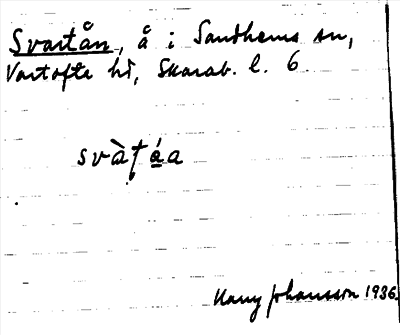 Svartån, å i Sandhems sn,
Vartofta hd, Skarab. l. 6
svàṭá̱a
Harry Johansson 1936.